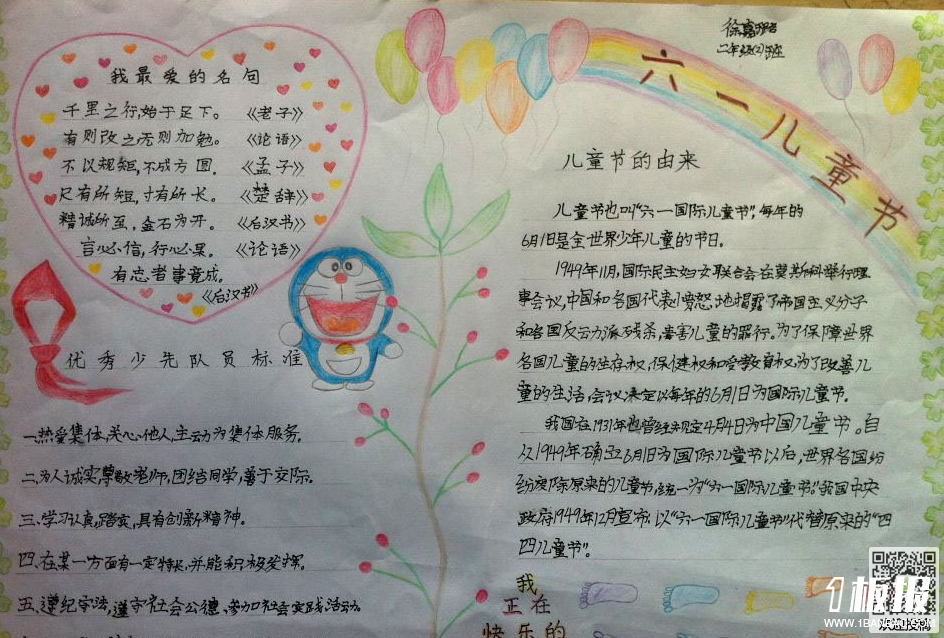 我最爱的名句
千里之行,始于足下。《老子》
有则改之无则加勉。《论语》
不以规矩,不成方圆。《孟子》
尺有所短,寸有所长。《楚辞》
精诚所至,金石为开。《后汉书》
言必信,行必果。《论语》
有志者事竟成。
《后汉书》
优秀少先队员标准
一.热爱集体,关心他人,主动为集体服务。
二.为人诚实,尊敬老师,团结同学,善于交际。
三.学习认真,踏实,具有创新精神。
四.在某一方面有一定特长,并能积极发挥。
五.遵纪守法,遵守社会公德,参加社会实践活动。
二年级(2)班
六一儿童节
儿童节的由来
儿童节也叫“六一国际儿童节”,每年的
6月1日是全世界少年儿童的节日。
1949年11月,国际民主妇女联合会在莫斯科举行理
事会议,中国和各国代表愤怒地揭露了帝国主义分子
和各国反动派残杀,毒害儿童的罪行。为了保障世界
各国儿童的生存权,保健权和受教育权,为了改善儿
童的生活,会议决定以每年的6月1日为国际儿童节。
我国在1931年也曾经规定4月4日为中国儿童节。自
从1949年确立6月1日为国际儿童节以后,世界各国纷
纷废除原来的儿童节,统一为“六一国际儿童节”。我国中央
政府1949年12月宣布:以“六一国际儿童节”代替原来的“四
四儿童节”。
我
正在
快乐的
1板报
WWW.1BANBAO.COM